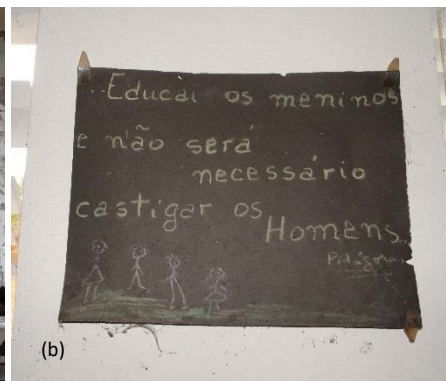 ..Educai os meninos
e não será
necessário
castigar os
Homens..
(b)